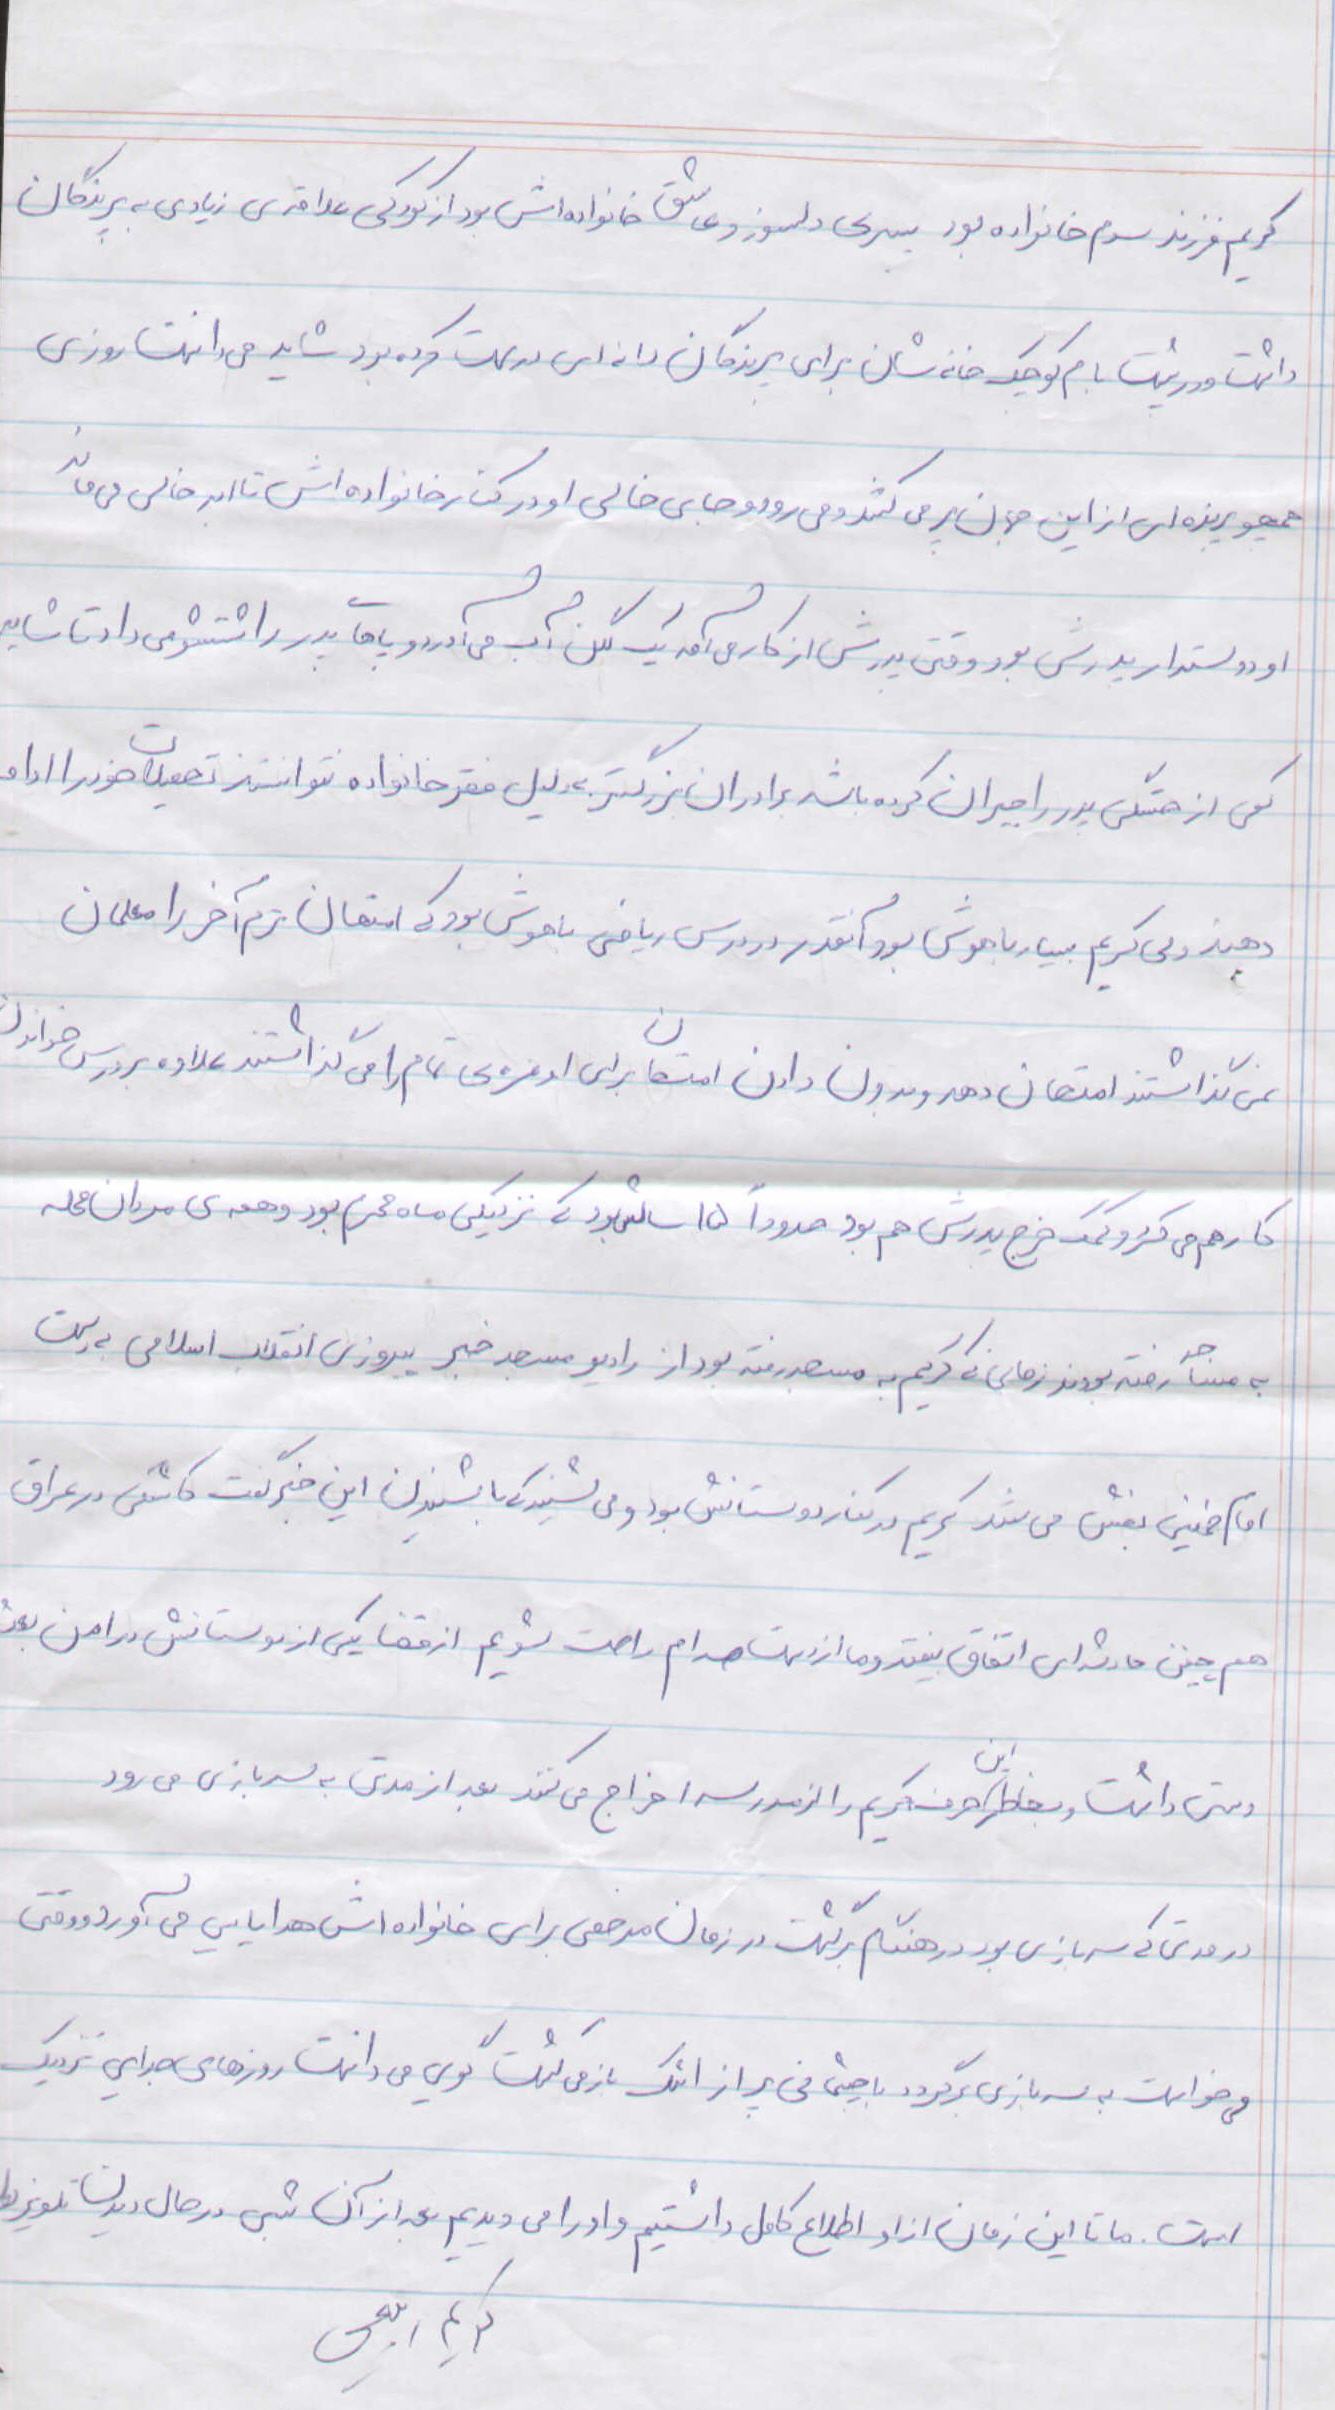 کریم فرزند سوم خانواده بود پسری دلسوز و عاشق خانواده اش بود از کودکی علاقه ی زیادی به پرندگان
داشت و در پشت بام کوچک خانه شان برای پرندگان دانه ای درست کرده بود شاید می دانست روزی
همچو پرنده ای از این جهان پر می کشد و می رود و جای خالی او در کنار خانواده اش تا ابد خالی می ماند
او دوستدار پدرش بود وقتی پدرش از کار می آمد یک گلن آب می آورد و پاهای پدر را شستشو می داد تا شاید
کمی از خستگی پدر را جبران کرده باشد برادران بزرگتر به دلیل فقر خانواده نتوانستند تحصیلات خود را ادامه
دهند ولی کریم بسیار باهوش بود و آنقدر در درس ریاضی باهوش بود که امتحان ترم آخر را معلمان
نمی گذاشتند امتحان دهد و بدون دادن امتحان برای او نمره ی تمام را می گذاشتند علاوه بر درس خواندن
کار هم می کرد و کمک خرج پدرش هم بود حدوداً ۱۵ سالش بود که نزدیکی ماه محرم بود و همه ی مردان محله
به مسجد رفته بودند زمانی که کریم به مسجد رفته بود از رادیو مسجد خبر پیروزی انقلاب اسلامی به دست
امام خمینی پخش می شد کریم در کنار دوستانش بود و می شنید که با شنیدن این خبر گفت کاشکی در عراق
هم چنین حادثه ای اتفاق بیفتد و ما از دست صدام راحت شویم از قضا یکی از دوستانش در امن بعث
دستی داشت و بخاطر این حرف کریم را از مدرسه اخراج می کنند بعد از مدتی به سربازی می رود
در مدتی که سربازی بود در هنگام برگشت در زمان مرخصی برای خانواده اش هدایایی می آورد و وقتی
می خواست به سربازی برگردد با چشمانی پر از اشک باز می گشت گویی می دانست روزهای جدایی نزدیک
است. ما تا این زمان از او اطلاع کامل داشتیم و او را می دیدیم بعد از آن شبی در حال دیدن تلویزیون
کریم